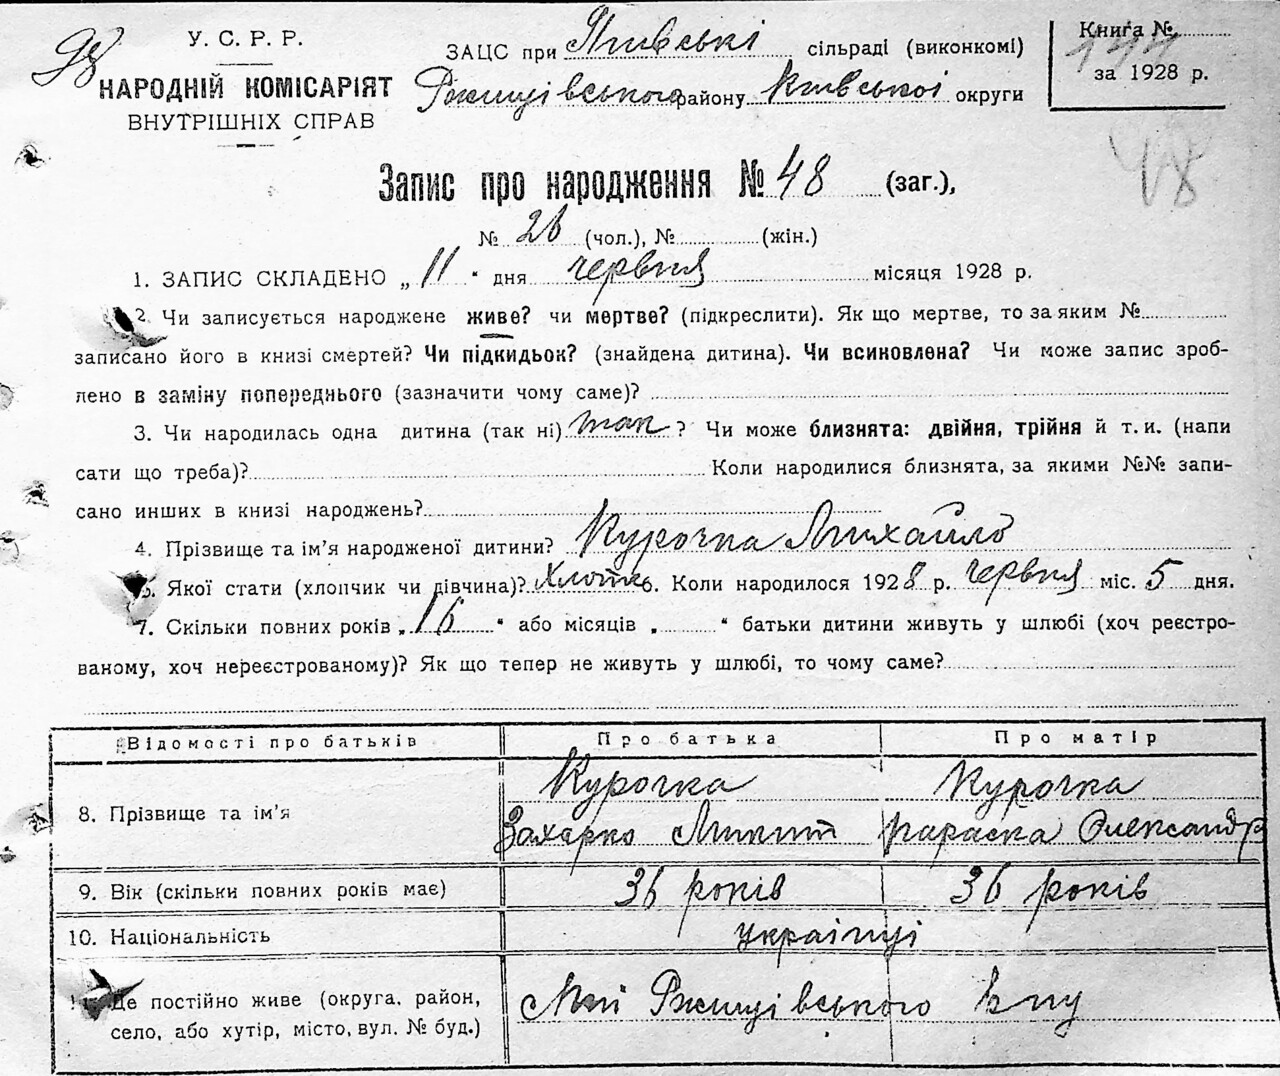 98
У. С. Р. Р.
НАРОДНІЙ КОМІСАРІЯТ
ВНУТРІШНІХ СПРАВ
ЗАЦС при сільраді (виконкомі)
Ржищівського району Київської округи
Книга №
144
за 1928 р.
48
Запис про народження № 48 (заг.),
№ 26 (чол.), № (жін.)
1. ЗАПИС СКЛАДЕНО „ 11 " дня червня місяця 1928 р.
2. Чи записується народжене живе? чи мертве? (підкреслити). Як що мертве, то за яким №
записано його в книзі смертей? Чи підкидьок? (знайдена дитина). Чи всиновлена? Чи може запис зроб-
лено в заміну попереднього (зазначити чому саме)?
3. Чи народилась одна дитина (так ні) так ? Чи може близнята: двійня, трійня й т. и. (напи
сати що треба)? Коли народилися близнята, за якими №№ запи-
сано инших в книзі народжень?
4. Прізвище та ім'я народженої дитини? Курочка Михайло
6. Якої стати (хлопчик чи дівчина)? 6. Коли народилося 1928 р. червня міс. 5 дня.
7. Скільки повних років „ 16 " або місяців „ " батьки дитини живуть у шлюбі (хоч реєстро-
ваному, хоч нереєстрованому)? Як що тепер не живуть у шлюбі, то чому саме?
Відомості про батьків Про батька Про матір
8. Прізвище та ім'я Курочка Курочка
Захарко Микит Параска Олександр
9. Вік (скільки повних років має) 36 років 36 років
10. Національність українці
11. Де постійно живе (округа, район, Ржищівського
село, або хутір, місто, вул. № буд.)